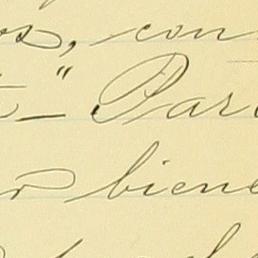 os, con
" Par
r biene